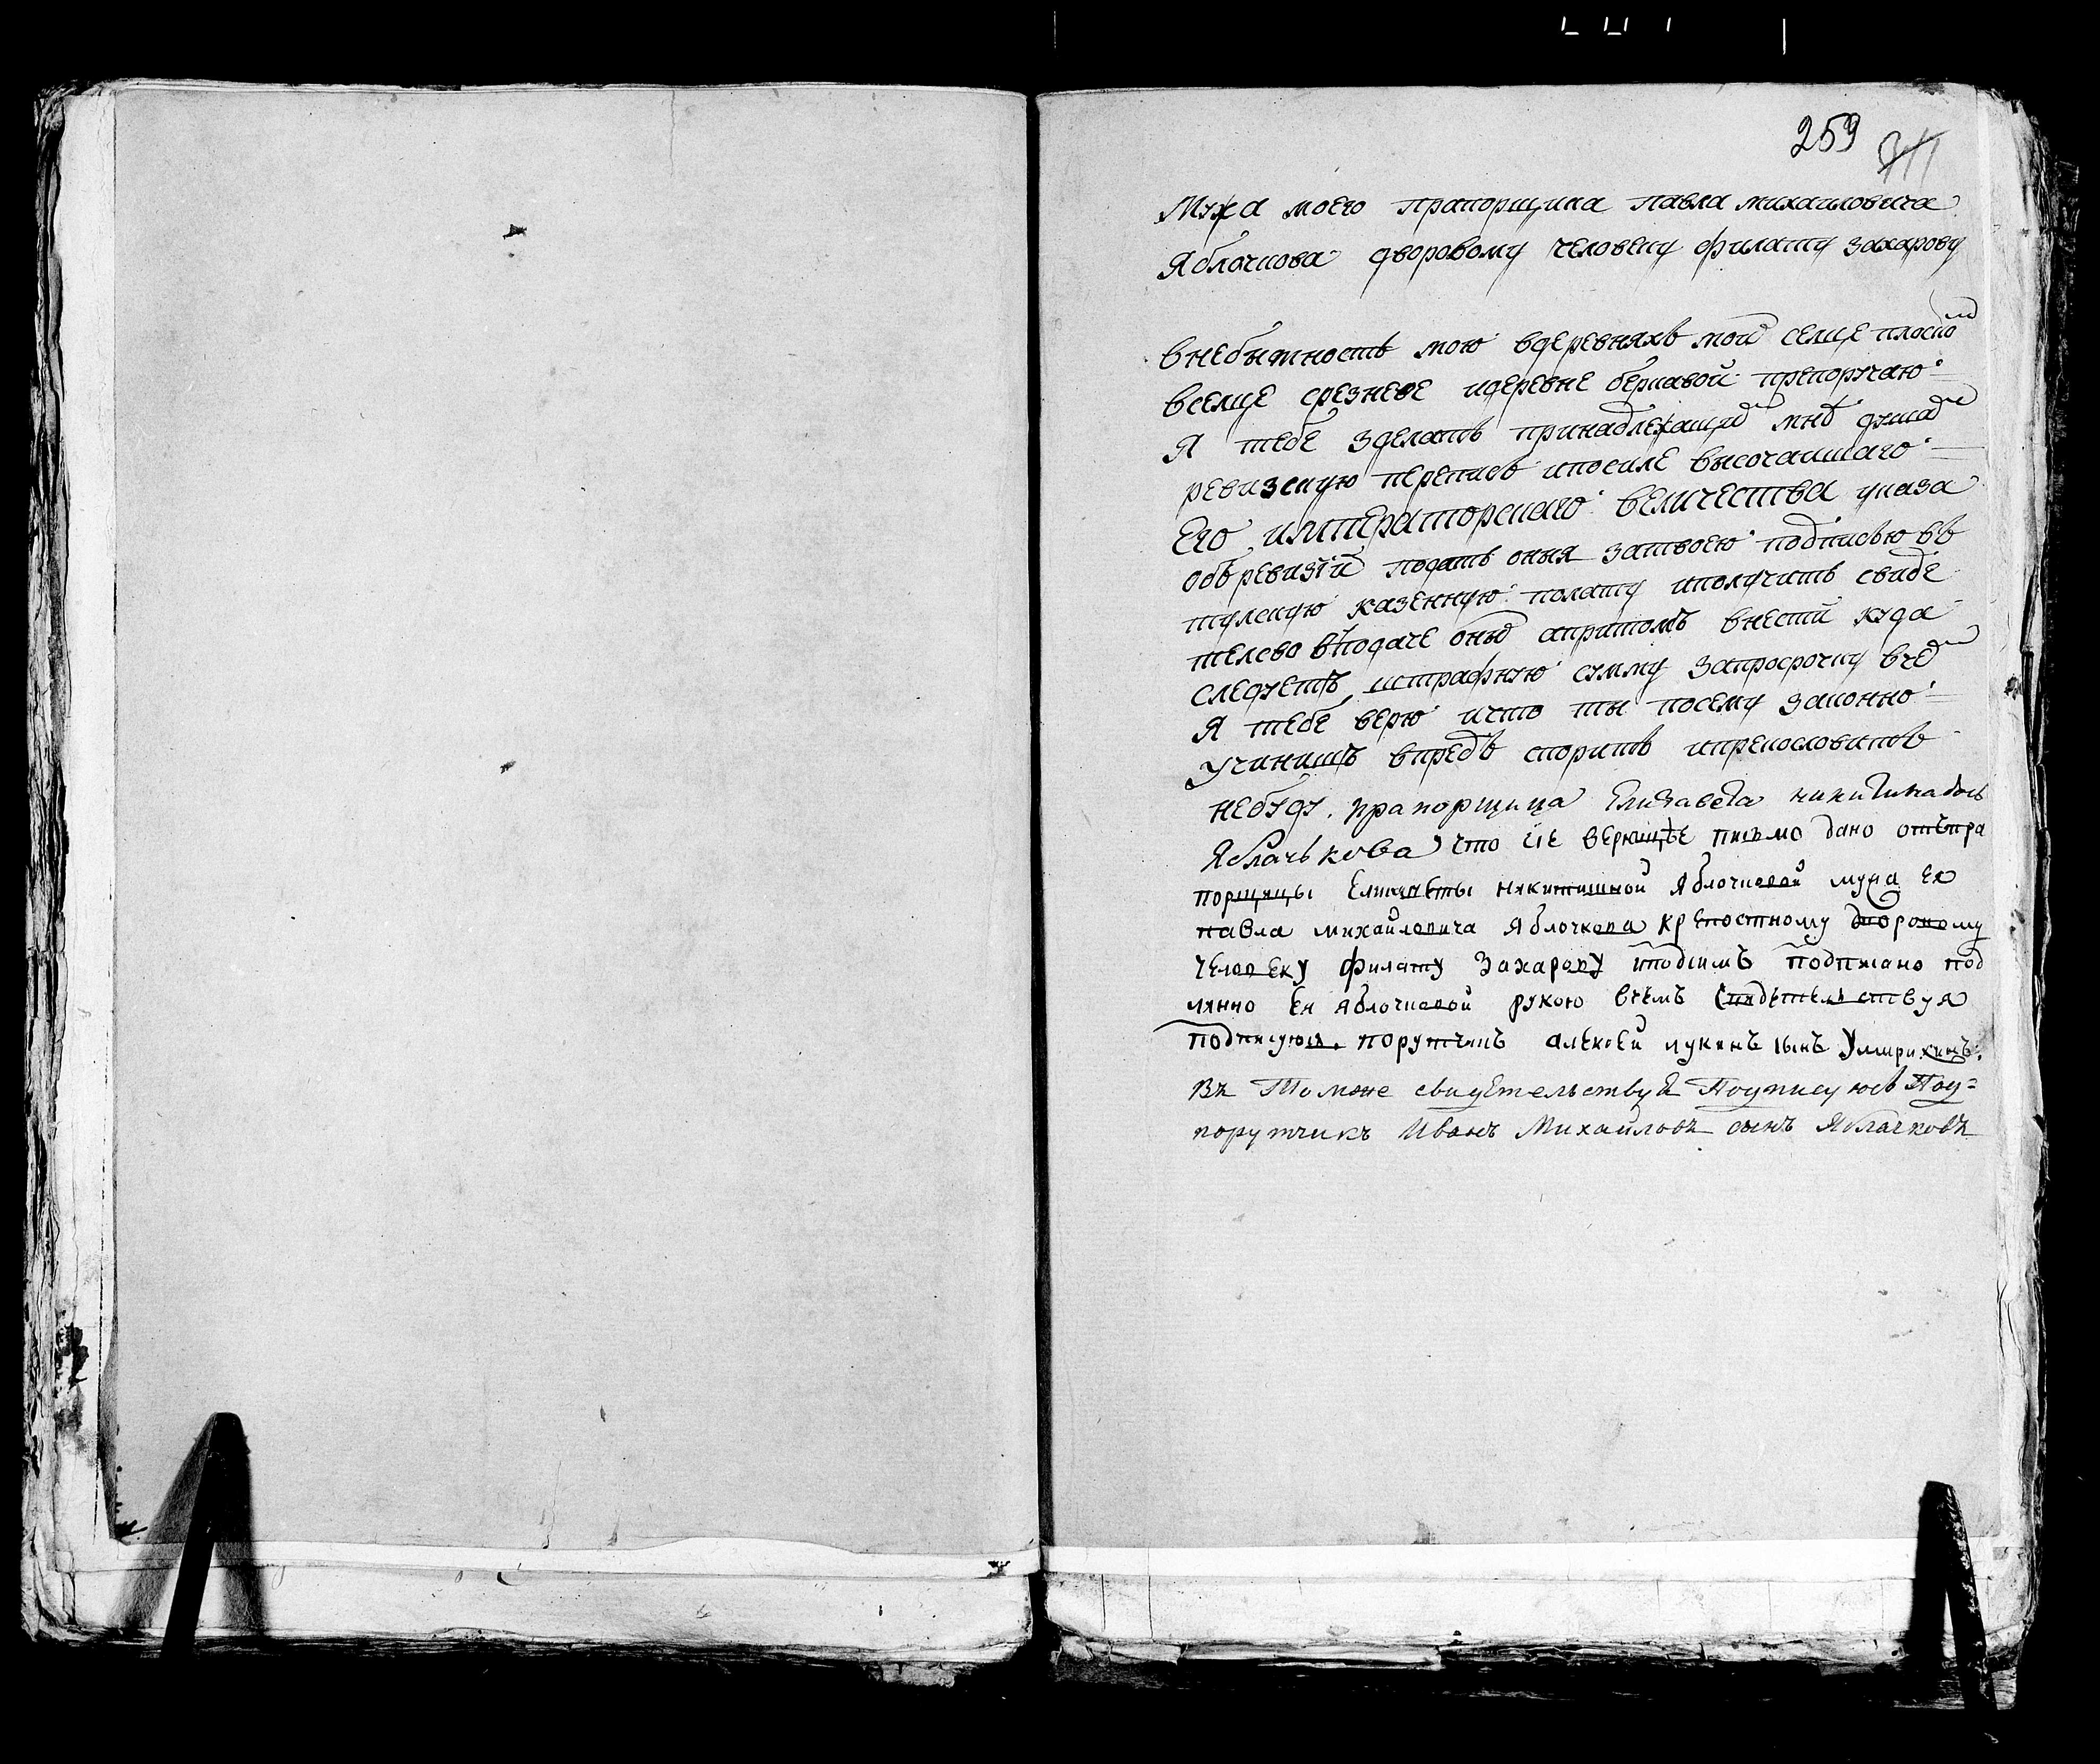 259
Мужа моего прапорщика павла михаиловича
Яблочкова дворовому человеку филату захарову
внебытность мою вдеревняхъ мои селце плоско
вселце срезневе идеревне бернавой препоручаю
я тебе зделать принадлежащи мнѣ душа
ревизскую перепись ипосиле высочаишаго
Его императорскаго величества указа
объ ревизіи подать оныя затвоею подписью въ
тулскую казенную полату иполучить свиде
телсво вподаче оны апритомъ внести куда
следуетъ штрафную сумму запросрочку вче
я тебе верю ичто ты посему законно
учинишъ впредь спорить ипрекословить
небуду. прапорщица Елизавета никитина дочь
Яблачькова что сіе верющѣе писмо дано отъпра
порщицы Елизаветы никитишной Яблочковой мужа ея
павла михаиловича Яблочкова крепостному двороному
человеку филату Захарову иподсимъ подписано под
линно ея яблочковой рукою вчемъ свидѣтельствуя
подписуюся. порутчикъ алексей лукинъ сынъ
Въ томже свидетельствуя Подписуюсь Под=
порутчикъ Иванъ Михайловъ сынъ Яблачковъ